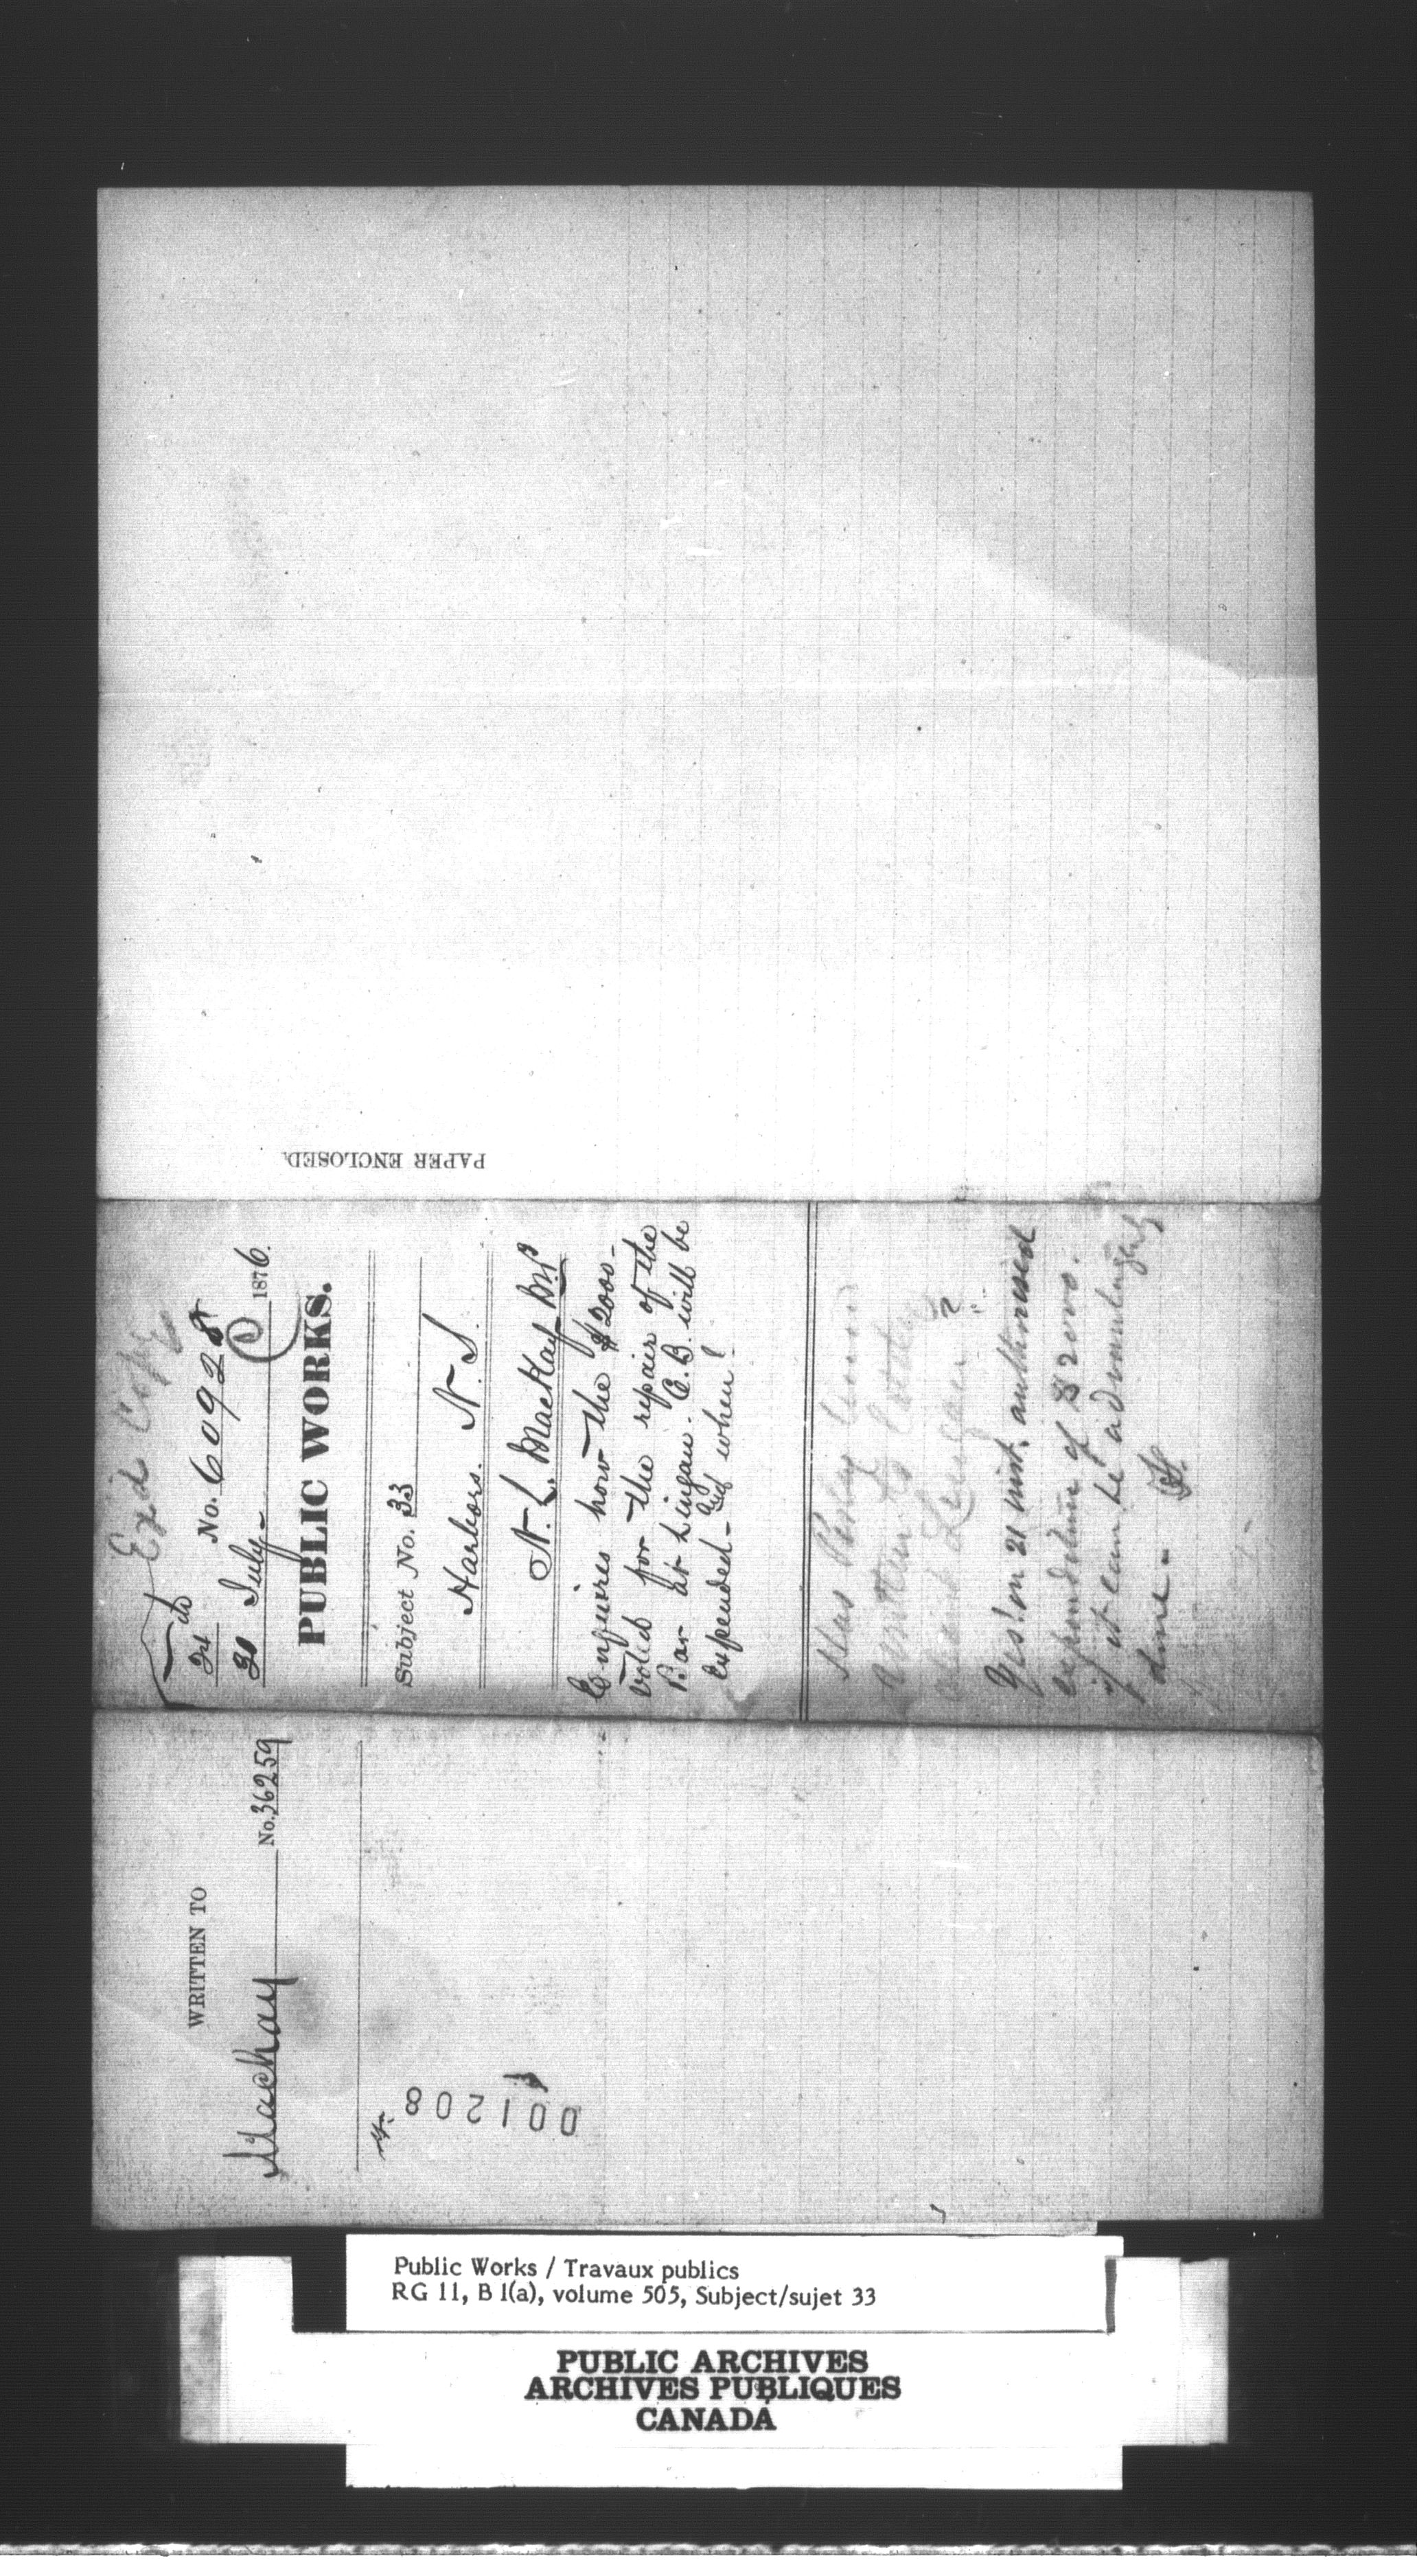 PAPER ENCLOSED.
No. 60928
20 July 1876.
PUBLIC WORKS.
Subject No. 33
Harbors. N. S.
N. L. MacKay MP
Enquires how the $2000-
voted for the repair of the
Bar at Lingan. C.B. will be
expended - and when?
Has Perley been
written to
about Lingan?
Yes! on 21 inst. authorised
expenditure of $2000.
if it can be advantageously
done -
WRITTEN TO
Mackay No. 36259
001208
Public Works / Travaux publics
RG 11, B 1(a), volume 505, Subject/sujet 33
PUBLIC ARCHIVES
ARCHIVES PUBLIQUES
CANADA